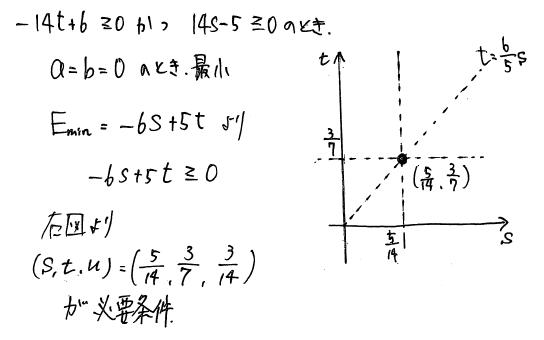 -14t+6≧0 かつ 14s-5≧0 のとき.
a=b=0 のとき.最小
Emin = -6s+5t より
-6s+5t≧0
右図より
(s,t,u)=(5/14, 3/7, 3/14)
が必要条件.
t
t=6/5 s
3/7
(5/14, 3/7)
5/14
s